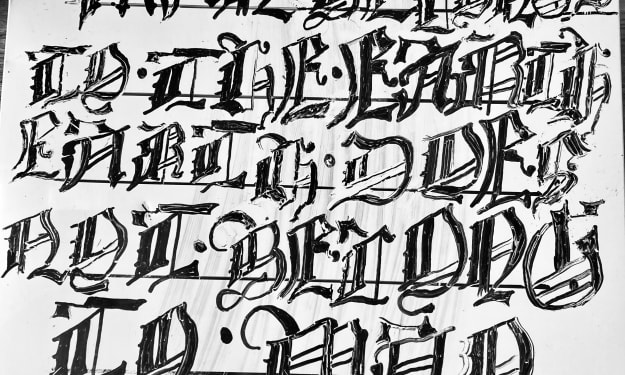 BELONGS
TO·THE·EARTH
EARTH·DOES
NOT·BELONG
TO·MAN